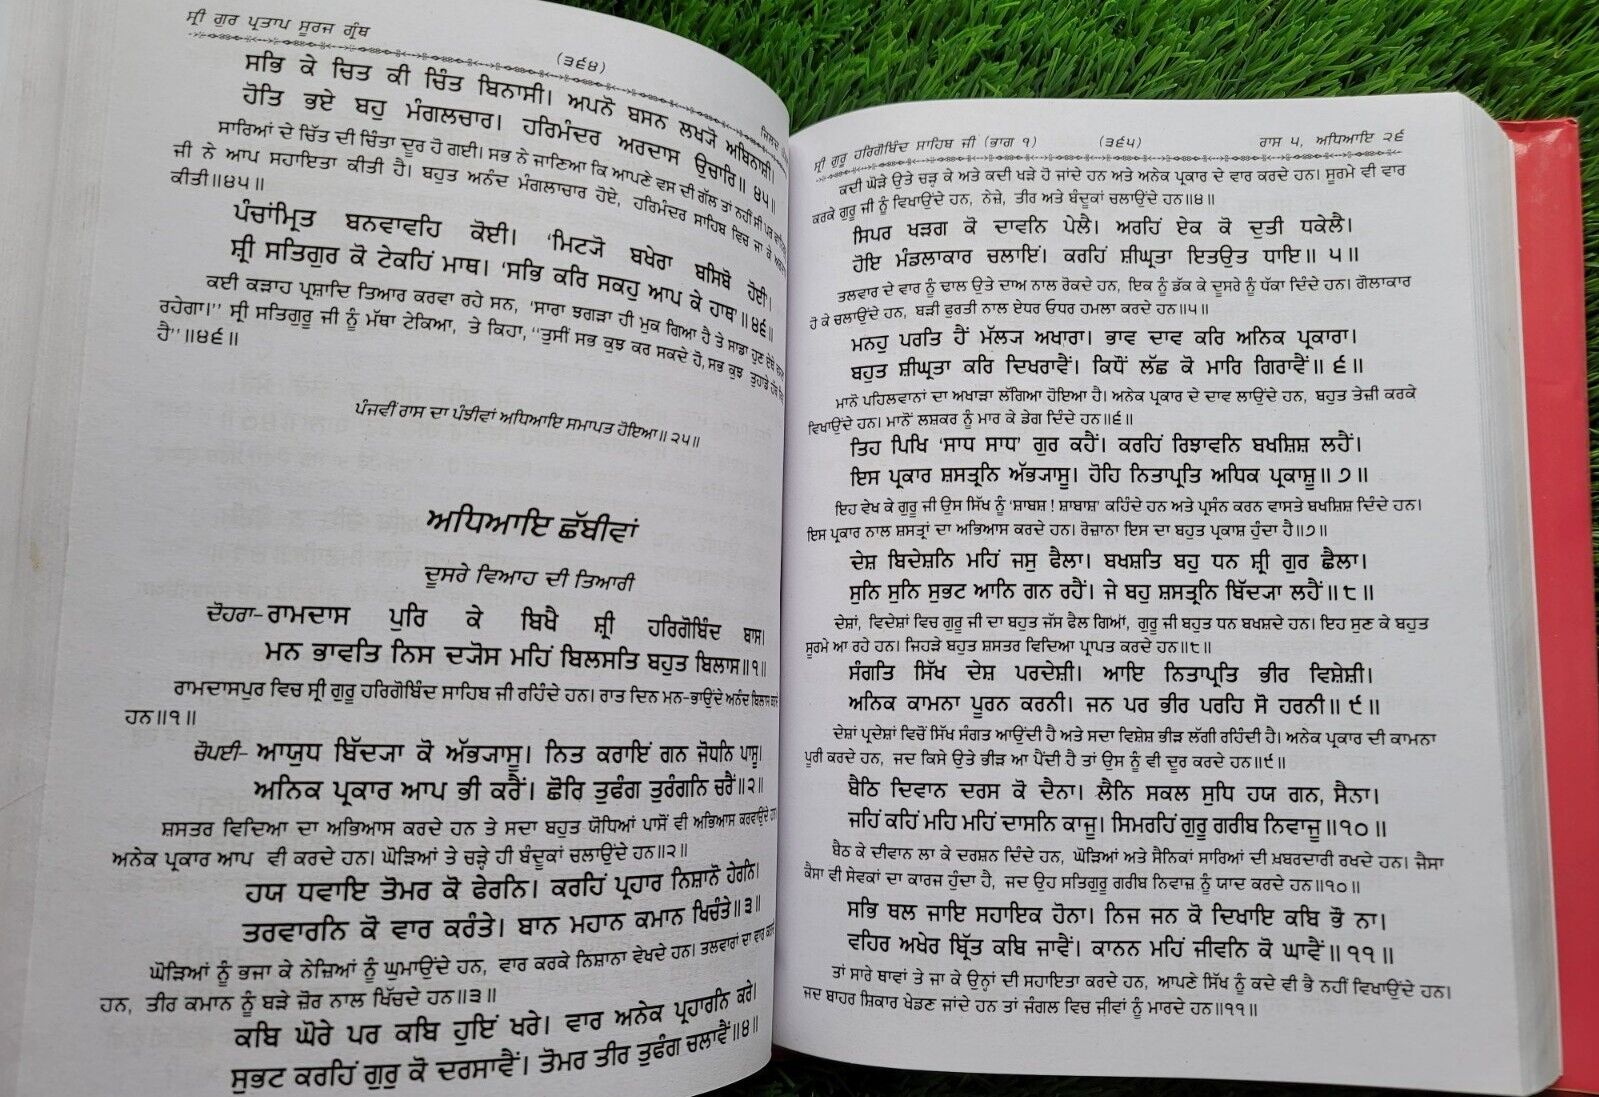 ਸ੍ਰੀ ਗੁਰ ਪ੍ਰਤਾਪ ਸੂਰਜ ਗ੍ਰੰਥ
(੩੯੪)
ਜਿਲਦ
ਸਭਿ ਕੇ ਚਿਤ ਕੀ ਚਿੰਤ ਬਿਨਾਸੀ। ਅਪਨੋ ਬਸਨ ਲਖ੍ਯੋ ਅਬਿਨਾਸ਼ੀ।
ਹੋਤਿ ਭਏ ਬਹੁ ਮੰਗਲਚਾਰ। ਹਰਿਮੰਦਰ ਅਰਦਾਸ ਉਚਾਰਿ॥੪੫॥
ਸਾਰਿਆਂ ਦੇ ਚਿੱਤ ਦੀ ਚਿੰਤਾ ਦੂਰ ਹੋ ਗਈ। ਸਭ ਨੇ ਜਾਣਿਆ ਕਿ ਆਪਣੇ ਵਸ ਦੀ ਗੱਲ ਤਾਂ ਨਹੀਂ ਸੀ ਪਰ
ਜੀ ਨੇ ਆਪ ਸਹਾਇਤਾ ਕੀਤੀ ਹੈ। ਬਹੁਤ ਅਨੰਦ ਮੰਗਲਾਚਾਰ ਹੋਏ, ਹਰਿਮੰਦਰ ਸਾਹਿਬ ਵਿਚ ਜਾ ਕੇ
ਕੀਤੀ॥੪੫॥
ਪੰਚਾਂਮ੍ਰਿਤ ਬਨਵਾਵਹਿ ਕੋਈ। 'ਮਿਟ੍ਯੋ ਬਖੇਰਾ ਬਸਿਬੋ ਹੋਈ'।
ਸ਼੍ਰੀ ਸਤਿਗੁਰ ਕੋ ਟੇਕਹਿਂ ਮਾਥ। 'ਸਭਿ ਕਰਿ ਸਕਹੁ ਆਪ ਕੇ ਹਾਥ'॥੪੬॥
ਕਈ ਕੜਾਹ ਪ੍ਰਸ਼ਾਦਿ ਤਿਆਰ ਕਰਵਾ ਰਹੇ ਸਨ, 'ਸਾਰਾ ਝਗੜਾ ਹੀ ਮੁਕ ਗਿਆ ਹੈ ਤੇ ਸਾਡਾ ਹੁਣ ਏਥੇ
ਰਹੇਗਾ।'' ਸ੍ਰੀ ਸਤਿਗੁਰੂ ਜੀ ਨੂੰ ਮੱਥਾ ਟੇਕਿਆ, ਤੇ ਕਿਹਾ, ''ਤੁਸੀਂ ਸਭ ਕੁਝ ਕਰ ਸਕਦੇ ਹੋ, ਸਭ ਕੁਝ ਤੁਹਾਡੇ
ਹੈ''॥੪੬॥
ਪੰਜਵੀਂ ਰਾਸ ਦਾ ਪੰਝੀਵਾਂ ਅਧਿਆਇ ਸਮਾਪਤ ਹੋਇਆ॥੨੫॥
ਅਧਿਆਇ ਛੱਬੀਵਾਂ
ਦੂਸਰੇ ਵਿਆਹ ਦੀ ਤਿਆਰੀ
ਦੋਹਰਾ- ਰਾਮਦਾਸ ਪੁਰਿ ਕੇ ਬਿਖੈ ਸ਼੍ਰੀ ਹਰਿਗੋਬਿੰਦ ਬਾਸ।
ਮਨ ਭਾਵਤਿ ਨਿਸ ਦ੍ਯੋਸ ਮਹਿਂ ਬਿਲਸਤਿ ਬਹੁਤ ਬਿਲਾਸ॥੧॥
ਰਾਮਦਾਸਪੁਰ ਵਿਚ ਸ੍ਰੀ ਗੁਰੂ ਹਰਿਗੋਬਿੰਦ ਸਾਹਿਬ ਜੀ ਰਹਿੰਦੇ ਹਨ। ਰਾਤ ਦਿਨ ਮਨ-ਭਾਉਂਦੇ ਅਨੰਦ ਬਿਲਾਸ ਕਰਦੇ
ਹਨ॥੧॥
ਚੋਪਈ- ਆਯੁਧ ਬਿੱਦ੍ਯਾ ਕੋ ਅੱਭ੍ਯਾਸੂ। ਨਿਤ ਕਰਾਇਂ ਗਨ ਜੋਧਨਿ ਪਾਸੂ।
ਅਨਿਕ ਪ੍ਰਕਾਰ ਆਪ ਭੀ ਕਰੈਂ। ਛੋਰਿ ਤੁਫੰਗ ਤੁਰੰਗਨਿ ਚਰੈਂ॥੨॥
ਸ਼ਸਤਰ ਵਿਦਿਆ ਦਾ ਅਭਿਆਸ ਕਰਦੇ ਹਨ ਤੇ ਸਦਾ ਬਹੁਤ ਯੋਧਿਆਂ ਪਾਸੋਂ ਵੀ ਅਭਿਆਸ ਕਰਵਾਉਂਦੇ ਹਨ
ਅਨੇਕ ਪ੍ਰਕਾਰ ਆਪ ਵੀ ਕਰਦੇ ਹਨ। ਘੋੜਿਆਂ ਤੇ ਚੜ੍ਹੇ ਹੀ ਬੰਦੂਕਾਂ ਚਲਾਉਂਦੇ ਹਨ॥੨॥
ਹਯ ਧਵਾਇ ਤੋਮਰ ਕੋ ਫੇਰਨਿ। ਕਰਹਿਂ ਪ੍ਰਹਾਰ ਨਿਸ਼ਾਨੋ ਹੇਰਨਿ।
ਤਰਵਾਰਨਿ ਕੋ ਵਾਰ ਕਰੰਤੇ। ਬਾਨ ਮਹਾਨ ਕਮਾਨ ਖਿਚੰਤੇ॥੩॥
ਘੋੜਿਆਂ ਨੂੰ ਭਜਾ ਕੇ ਨੇਜ਼ਿਆਂ ਨੂੰ ਘੁਮਾਉਂਦੇ ਹਨ, ਵਾਰ ਕਰਕੇ ਨਿਸ਼ਾਨਾ ਵੇਖਦੇ ਹਨ। ਤਲਵਾਰਾਂ ਦਾ ਵਾਰ ਕਰਦੇ
ਹਨ, ਤੀਰ ਕਮਾਨ ਨੂੰ ਬੜੇ ਜ਼ੋਰ ਨਾਲ ਖਿੱਚਦੇ ਹਨ॥੩॥
ਕਬਿ ਘੋਰੇ ਪਰ ਕਬਿ ਹੁਇਂ ਖਰੇ। ਵਾਰ ਅਨੇਕ ਪ੍ਰਹਾਰਨਿ ਕਰੇ।
ਸੁਭਟ ਕਰਹਿਂ ਗੁਰੁ ਕੋ ਦਰਸਾਵੈਂ। ਤੋਮਰ ਤੀਰ ਤੁਫੰਗ ਚਲਾਵੈਂ॥੪॥
ਸ੍ਰੀ ਗੁਰੂ ਹਰਿਗੋਬਿੰਦ ਸਾਹਿਬ ਜੀ (ਭਾਗ ੧)
(੩੯੫)
ਰਾਸ ੫, ਅਧਿਆਇ ੨੬
ਕਦੀ ਘੋੜੇ ਉਤੇ ਚੜ੍ਹ ਕੇ ਅਤੇ ਕਦੀ ਖੜੇ ਹੋ ਜਾਂਦੇ ਹਨ ਅਤੇ ਅਨੇਕ ਪ੍ਰਕਾਰ ਦੇ ਵਾਰ ਕਰਦੇ ਹਨ। ਸੂਰਮੇ ਵੀ ਵਾਰ
ਕਰਕੇ ਗੁਰੂ ਜੀ ਨੂੰ ਵਿਖਾਉਂਦੇ ਹਨ, ਨੇਜ਼ੇ, ਤੀਰ ਅਤੇ ਬੰਦੂਕਾਂ ਚਲਾਉਂਦੇ ਹਨ॥੪॥
ਸਿਪਰ ਖੜਗ ਕੋ ਦਾਵਨਿ ਪੇਲੈ। ਅਰਹਿਂ ਏਕ ਕੋ ਦੁਤੀ ਧਕੇਲੈ।
ਹੋਇ ਮੰਡਲਾਕਾਰ ਚਲਾਇਂ। ਕਰਹਿਂ ਸ਼ੀਘ੍ਰਤਾ ਇਤਉਤ ਧਾਇ॥੫॥
ਤਲਵਾਰ ਦੇ ਵਾਰ ਨੂੰ ਢਾਲ ਉਤੇ ਦਾਅ ਨਾਲ ਰੋਕਦੇ ਹਨ, ਇਕ ਨੂੰ ਡੱਕ ਕੇ ਦੂਸਰੇ ਨੂੰ ਧੱਕਾ ਦਿੰਦੇ ਹਨ। ਗੋਲਾਕਾਰ
ਹੋ ਕੇ ਚਲਾਉਂਦੇ ਹਨ, ਬੜੀ ਫੁਰਤੀ ਨਾਲ ਏਧਰ ਓਧਰ ਹਮਲਾ ਕਰਦੇ ਹਨ॥੫॥
ਮਨਹੁ ਪਰਤਿ ਹੈਂ ਮੱਲ੍ਯ ਅਖਾਰਾ। ਭਾਵ ਦਾਵ ਕਰਿ ਅਨਿਕ ਪ੍ਰਕਾਰਾ।
ਬਹੁਤ ਸ਼ੀਘ੍ਰਤਾ ਕਰਿ ਦਿਖਰਾਵੈਂ। ਕਿਧੌਂ ਲੱਛ ਕੋ ਮਾਰਿ ਗਿਰਾਵੈਂ॥੬॥
ਮਾਨੋ ਪਹਿਲਵਾਨਾਂ ਦਾ ਅਖਾੜਾ ਲੱਗਿਆ ਹੋਇਆ ਹੈ। ਅਨੇਕ ਪ੍ਰਕਾਰ ਦੇ ਦਾਵ ਲਾਉਂਦੇ ਹਨ, ਬਹੁਤ ਤੇਜ਼ੀ ਕਰਕੇ
ਵਿਖਾਉਂਦੇ ਹਨ। ਮਾਨੋਂ ਲਸ਼ਕਰ ਨੂੰ ਮਾਰ ਕੇ ਡੇਗ ਦਿੰਦੇ ਹਨ॥੬॥
ਤਿਹ ਪਿਖਿ 'ਸਾਧ ਸਾਧ' ਗੁਰ ਕਹੈਂ। ਕਰਹਿਂ ਰਿਝਾਵਨਿ ਬਖਸ਼ਿਸ਼ ਲਹੈਂ।
ਇਸ ਪ੍ਰਕਾਰ ਸ਼ਸਤ੍ਰਨਿ ਅੱਭ੍ਯਾਸੂ। ਹੋਹਿ ਨਿਤਾਪ੍ਰਤਿ ਅਧਿਕ ਪ੍ਰਕਾਸ਼ੂ॥੭॥
ਇਹ ਵੇਖ ਕੇ ਗੁਰੂ ਜੀ ਉਸ ਸਿੱਖ ਨੂੰ 'ਸ਼ਾਬਸ਼ ! ਸ਼ਾਬਾਸ਼' ਕਹਿੰਦੇ ਹਨ ਅਤੇ ਪ੍ਰਸੰਨ ਕਰਨ ਵਾਸਤੇ ਬਖਸ਼ਿਸ਼ ਦਿੰਦੇ ਹਨ।
ਇਸ ਪ੍ਰਕਾਰ ਨਾਲ ਸ਼ਸਤਾਂ ਦਾ ਅਭਿਆਸ ਕਰਦੇ ਹਨ। ਰੋਜ਼ਾਨਾ ਇਸ ਦਾ ਬਹੁਤ ਪ੍ਰਕਾਸ਼ ਹੁੰਦਾ ਹੈ॥੭॥
ਦੇਸ਼ ਬਿਦੇਸ਼ਨਿ ਮਹਿਂ ਜਸੁ ਫੈਲਾ। ਬਖਸ਼ਤਿ ਬਹੁ ਧਨ ਸ਼੍ਰੀ ਗੁਰ ਛੈਲਾ।
ਸੁਨਿ ਸੁਨਿ ਸੁਭਟ ਆਨਿ ਗਨ ਰਹੈਂ। ਜੇ ਬਹੁ ਸ਼ਸਤ੍ਰਨਿ ਬਿੱਦ੍ਯਾ ਲਹੈਂ॥੮॥
ਦੇਸ਼ਾਂ, ਵਿਦੇਸ਼ਾਂ ਵਿਚ ਗੁਰੂ ਜੀ ਦਾ ਬਹੁਤ ਜੱਸ ਫੈਲ ਗਿਆਂ, ਗੁਰੂ ਜੀ ਬਹੁਤ ਧਨ ਬਖਸ਼ਦੇ ਹਨ। ਇਹ ਸੁਣ ਕੇ ਬਹੁਤ
ਸੂਰਮੇ ਆ ਰਹੇ ਹਨ। ਜਿਹੜੇ ਬਹੁਤ ਸ਼ਸਤਰ ਵਿਦਿਆ ਪ੍ਰਾਪਤ ਕਰਦੇ ਹਨ॥੮॥
ਸੰਗਤਿ ਸਿੱਖ ਦੇਸ਼ ਪਰਦੇਸ਼ੀ। ਆਇ ਨਿਤਾਪ੍ਰਤਿ ਭੀਰ ਵਿਸ਼ੇਸ਼ੀ।
ਅਨਿਕ ਕਾਮਨਾ ਪੂਰਨ ਕਰਨੀ। ਜਨ ਪਰ ਭੀਰ ਪਰਹਿ ਸੋ ਹਰਨੀ॥੯॥
ਦੇਸ਼ਾਂ ਪ੍ਰਦੇਸ਼ਾਂ ਵਿਚੋਂ ਸਿੱਖ ਸੰਗਤ ਆਉਂਦੀ ਹੈ ਅਤੇ ਸਦਾ ਵਿਸ਼ੇਸ਼ ਭੀੜ ਲੱਗੀ ਰਹਿੰਦੀ ਹੈ। ਅਨੇਕ ਪ੍ਰਕਾਰ ਦੀ ਕਾਮਨਾ
ਪੂਰੀ ਕਰਦੇ ਹਨ, ਜਦ ਕਿਸੇ ਉਤੇ ਭੀੜ ਆ ਪੈਂਦੀ ਹੈ ਤਾਂ ਉਸ ਨੂੰ ਵੀ ਦੂਰ ਕਰਦੇ ਹਨ॥੯॥
ਬੈਠਿ ਦਿਵਾਨ ਦਰਸ ਕੋ ਦੈਨਾ। ਲੈਨਿ ਸਕਲ ਸੁਧਿ ਹਯ ਗਨ, ਸੈਨਾ।
ਜਹਿਂ ਕਹਿਂ ਮਹਿ ਮਹਿਂ ਦਾਸਨਿ ਕਾਜੂ। ਸਿਮਰਹਿਂ ਗੁਰੂ ਗਰੀਬ ਨਿਵਾਜੂ॥੧੦॥
ਬੈਠ ਕੇ ਦੀਵਾਨ ਲਾ ਕੇ ਦਰਸ਼ਨ ਦਿੰਦੇ ਹਨ, ਘੋੜਿਆਂ ਅਤੇ ਸੈਨਿਕਾਂ ਸਾਰਿਆਂ ਦੀ ਖ਼ਬਰਦਾਰੀ ਰਖਦੇ ਹਨ। ਜੈਸਾ
ਕੈਸਾ ਵੀ ਸੇਵਕਾਂ ਦਾ ਕਾਰਜ ਹੁੰਦਾ ਹੈ, ਜਦ ਉਹ ਸਤਿਗੁਰੂ ਗਰੀਬ ਨਿਵਾਜ਼ ਨੂੰ ਯਾਦ ਕਰਦੇ ਹਨ॥੧੦॥
ਸਭਿ ਥਲ ਜਾਇ ਸਹਾਇਕ ਹੋਨਾ। ਨਿਜ ਜਨ ਕੋ ਦਿਖਾਇ ਕਬਿ ਭੌ ਨਾ।
ਵਹਿਰ ਅਖੇਰ ਬ੍ਰਿਤ ਕਬਿ ਜਾਵੈਂ। ਕਾਨਨ ਮਹਿਂ ਜੀਵਨਿ ਕੋ ਘਾਵੈਂ॥੧੧॥
ਤਾਂ ਸਾਰੇ ਥਾਵਾਂ ਤੇ ਜਾ ਕੇ ਉਨ੍ਹਾਂ ਦੀ ਸਹਾਇਤਾ ਕਰਦੇ ਹਨ, ਆਪਣੇ ਸਿੱਖ ਨੂੰ ਕਦੇ ਵੀ ਭੈ ਨਹੀਂ ਵਿਖਾਉਂਦੇ ਹਨ।
ਜਦ ਬਾਹਰ ਸ਼ਿਕਾਰ ਖੇਡਣ ਜਾਂਦੇ ਹਨ ਤਾਂ ਜੰਗਲ ਵਿਚ ਜੀਵਾਂ ਨੂੰ ਮਾਰਦੇ ਹਨ॥੧੧॥